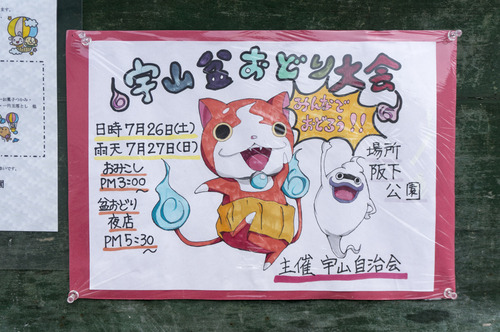 宇山盆おどり大会
みんなで
おどろう!!
日時7月26日(土)
雨天7月27日(日)
おみこし
PM3:00
盆おどり
夜店
PM5:30
場所
阪下
公園
主催 宇山自治会